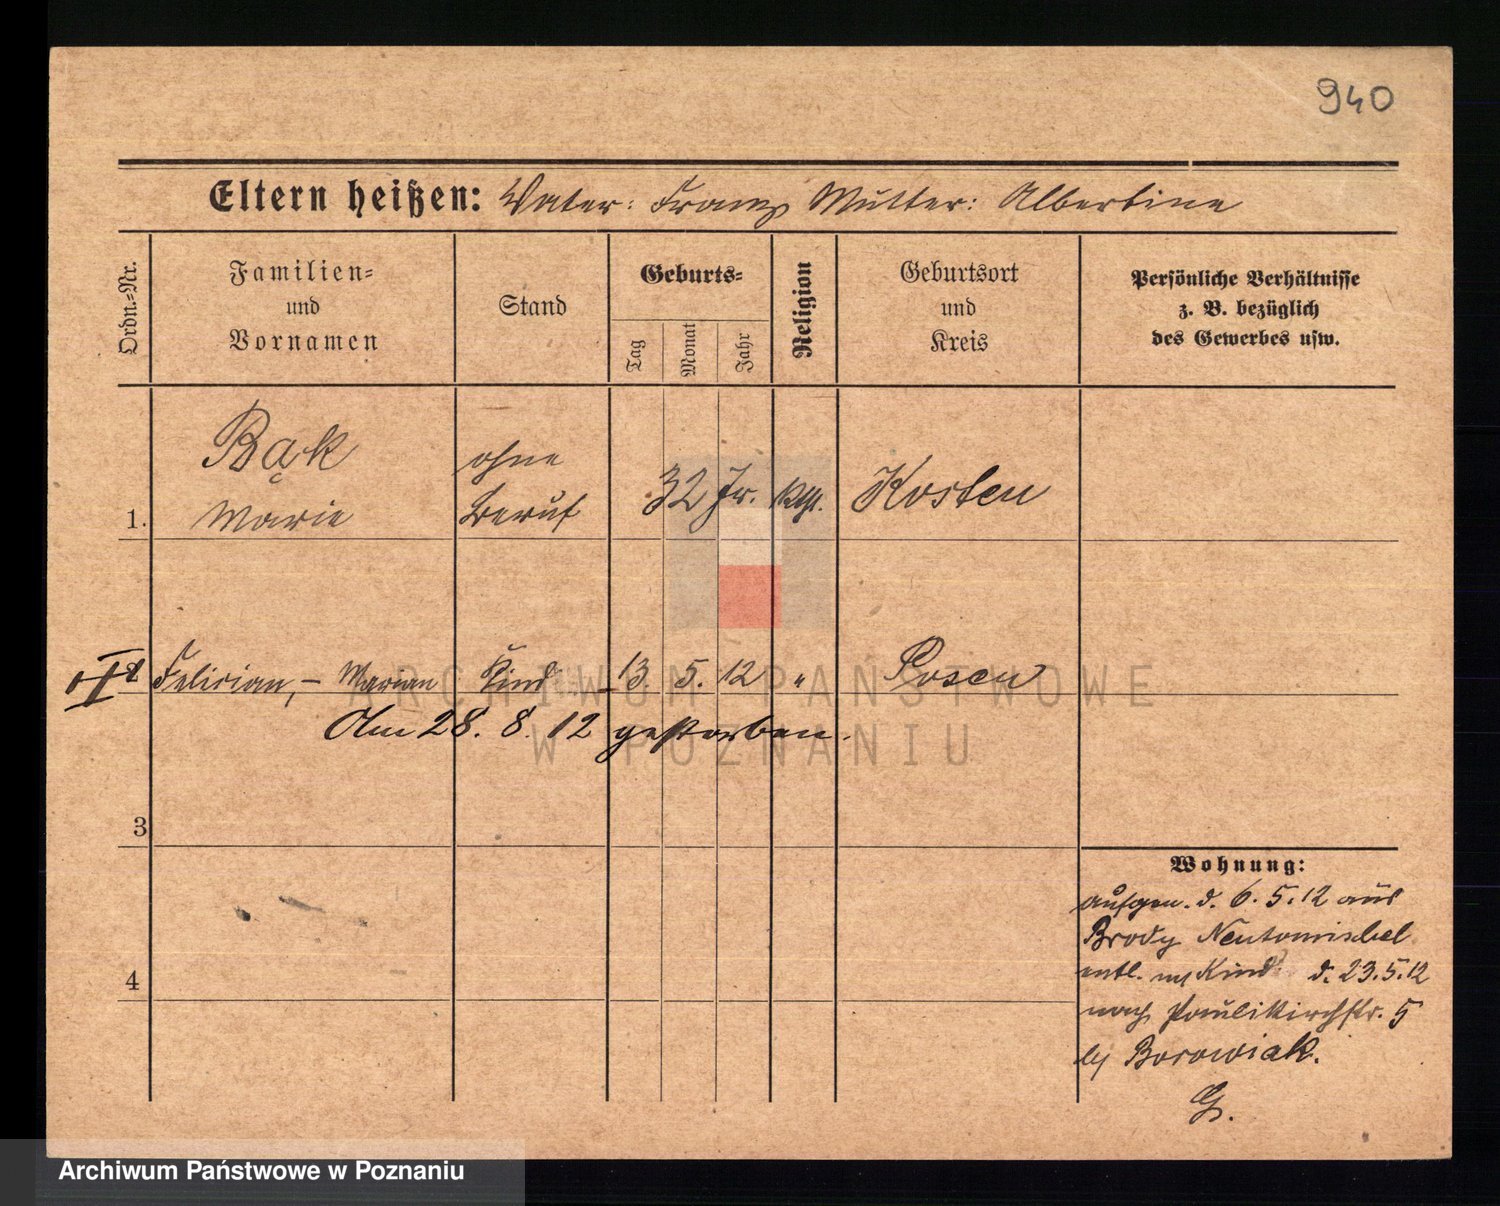 940
Eltern heißen: Vater: Franz Mutter: Albertine
Ordn.=Nr.
Familien=
und
Vornamen
Stand
Geburts=
Tag
Monat
Jahr
Religion
Geburtsort
und
Kreis
Persönliche Verhältnisse
z. B. bezüglich
des Gewerbes usw.
1.
Bąk
Marie
ohne
Beruf
32 Jr.
kth.
Kosten
Felician, – Marian Kind 13 5. 12 " Posen
Am 28. 8. 12 gestorben.
3
4
Wohnung:
aufgen. d. 6. 5. 12 aus
Brody Neutomischel
entl. m/ Kind d. 23. 5. 12
nach Paulikirchstr. 5
b/ Borowiak.
G.
ARCHIWUM PAŃSTWOWE
W POZNANIU
Archiwum Państwowe w Poznaniu